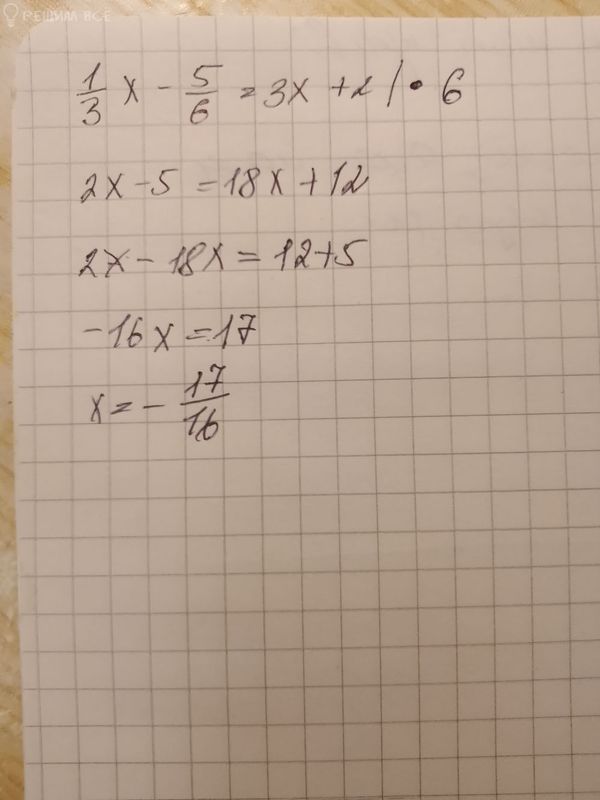 РЕШИМ ВСЁ
1/3 x - 5/6 = 3x + 2 | • 6
2x - 5 = 18x + 12
2x - 18x = 12 + 5
-16x = 17
x = - 17/16